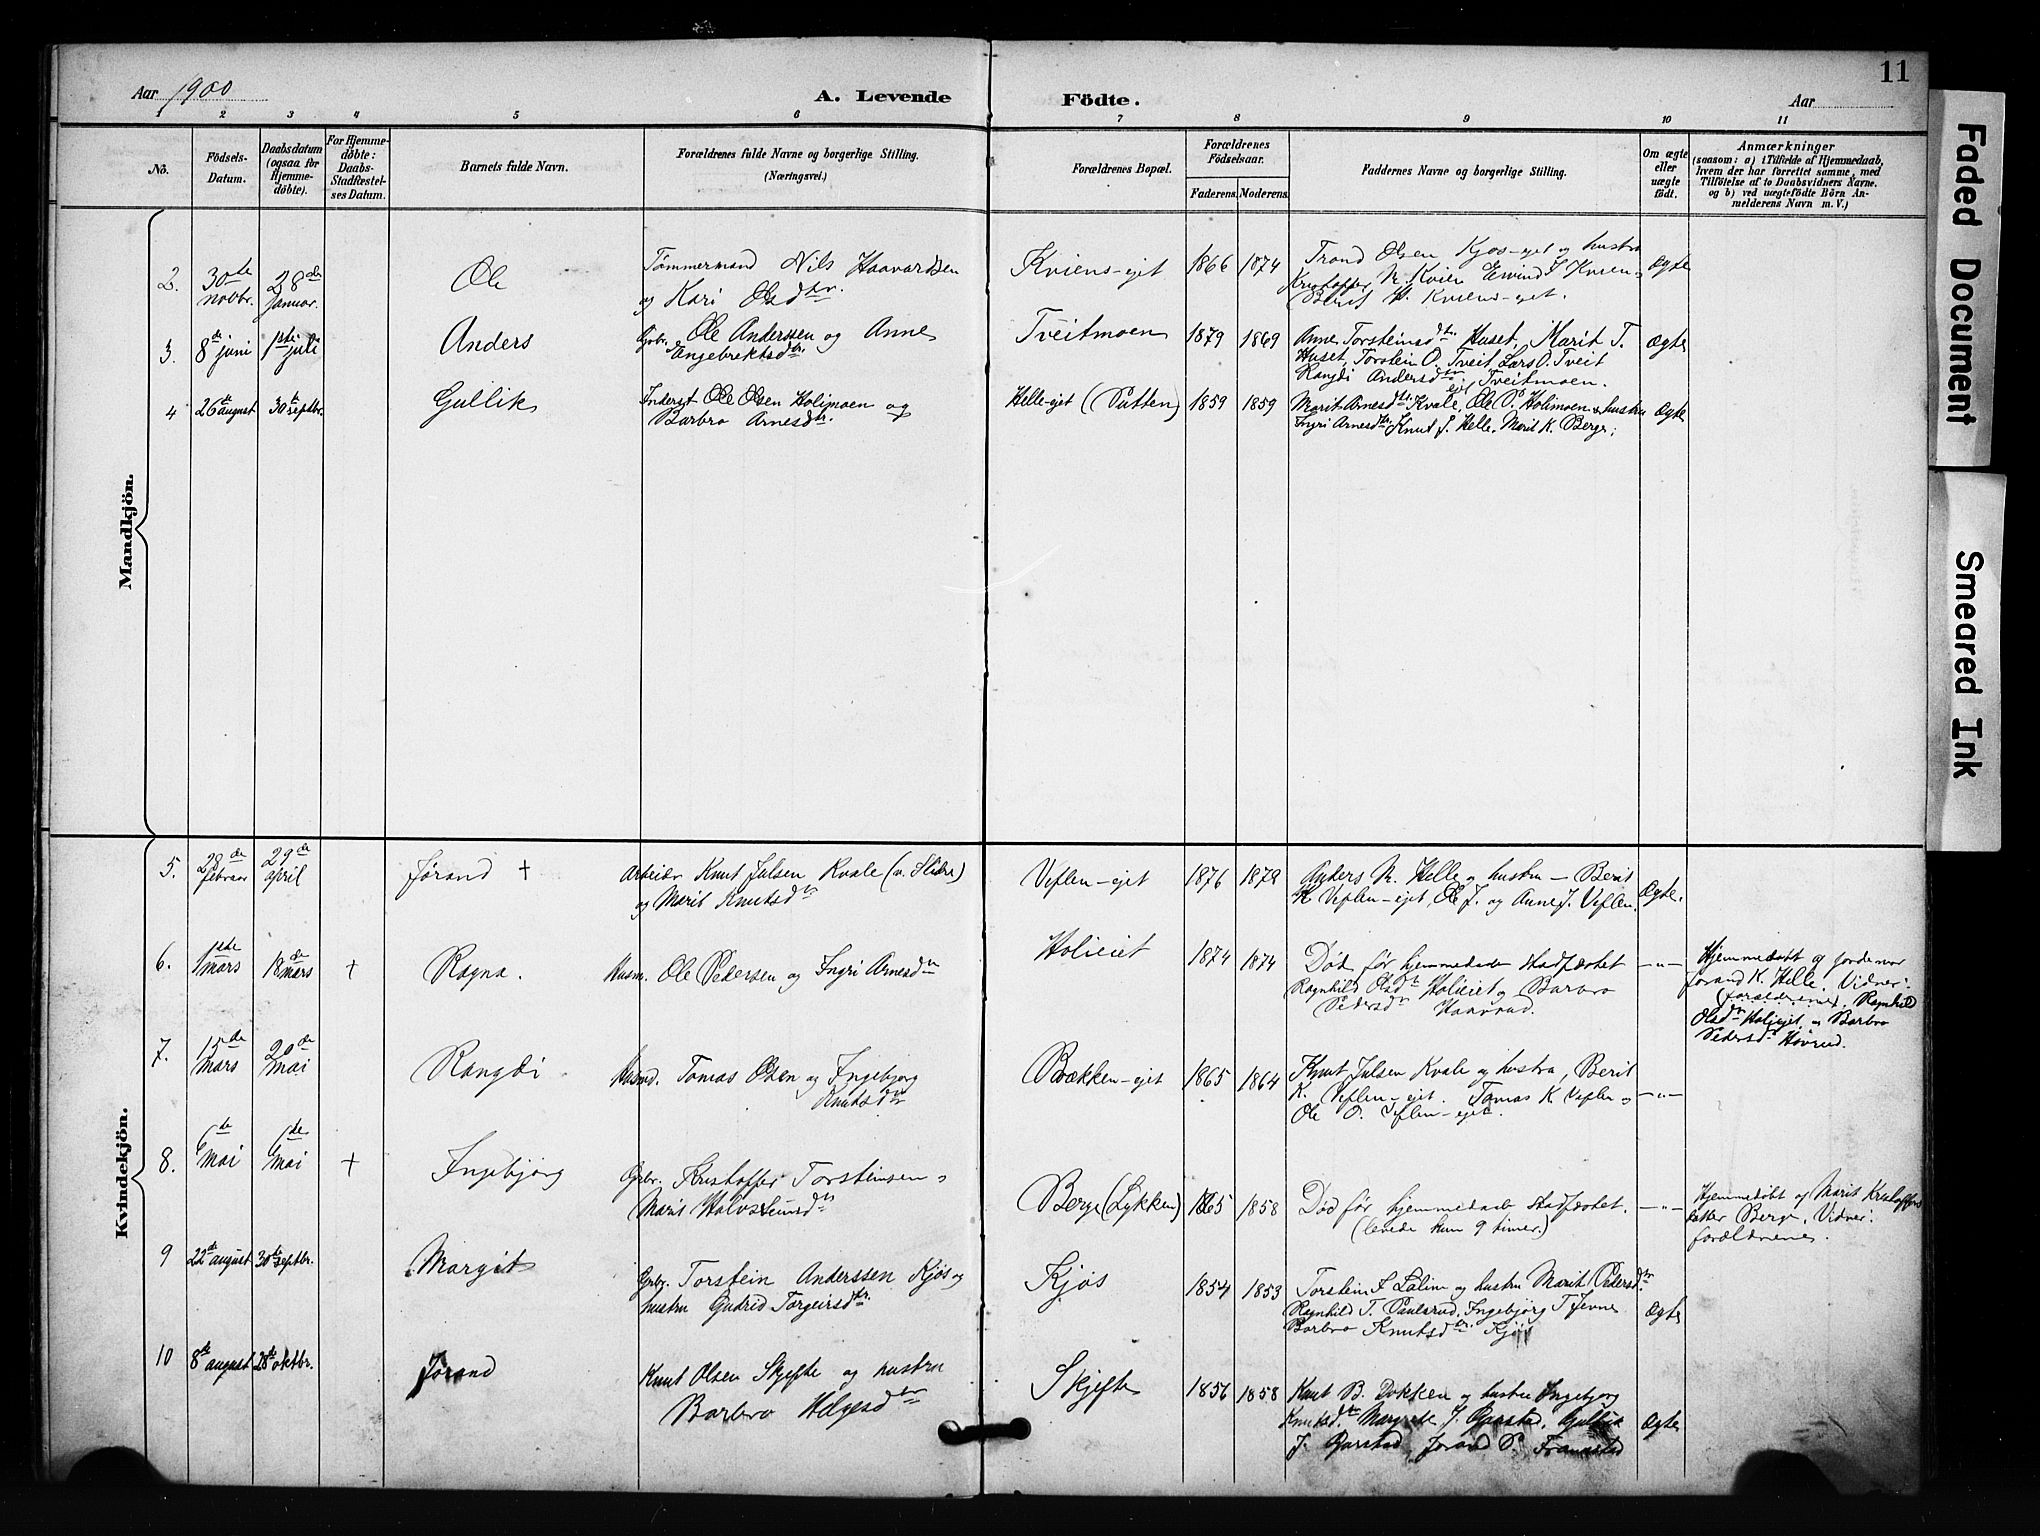 11
Aar 1900
A. Levende Födte.
Aar
1 2 3 4 5 6 7 8 9 10 11
No.
Födsels-Datum.
Daabsdatum (ogsaa for Hjemmedöbte).
For Hjemmedöbte: Daabs-Stadfæstelses Datum.
Barnets fulde Navn.
Forældrenes fulde Navne og borgerlige Stilling.
(Næringsvei.)
Forældrenes Bopæl.
Forældrenes Födselsaar.
Faderens. Moderens.
Faddernes Navne og borgerlige Stilling.
Om ægte eller uægte födt.
Anmærkninger
(saasom: a) i Tilfælde af Hjemmedaab,
hvem der har forrettet samme, med
Tilföielse af to Daabsvidners Navne.
og b) ved uægtefödte Börn An-
melderens Navn m. V.)
Mandkjön.
2. 30te novbr. 28de januar. Ole
Tømmermand Nils Haavardsen
og Kari Olsdtr.
Kviens-ejet 1866 1874
Trond Olsen Kjøs-ejet og hustru
Kristoffer N. Kvien Eivind I Kvien
Berit H. Kviens-ejet.
Ægte
3. 8de juni 1ste juli Anders
Gbr. Ole Anderssen og Anne
Engebrektsdtr.
Tveitmoen 1879 1869
Anne Torsteinsdtr. Huset, Marit T.
Huset, Torstein O. Tveit, Lars O. Tveit
Rangdi Andersdtr Tveitmoen.
Ægte
4 26de august 30te septbr. Gullik
Inderst Ole Olsen Holimoen og
Barbro Arnesdtr.
Helle-ejet (Putten) 1859 1859
Marit Arnesdtr. Kvale, Ole P. Holimoen og hustru
Ingri Arnesdtr. Knut J. Helle. Marit K. Berge;
Ægte
Kvindekjön.
5. 28de februar 29de april Jørand +
Arbeider Knut Julsen Kvale (v. Slidre)
og Marit Knutsdtr
Veflen-ejet 1876 1879
Anders N. Helle og hustru - Berit
K Veflen-ejet, Ole J. og Anne J. Veflen.
Ægte.
6. 1ste mars 18de mars + Ragna.
Husm. Ole Pedersen og Ingri Arnesdtr
Holieiet 1874 1874
Død før hjemmedaab stadfæstet
Ragnhild Olsdtr Holieiet og Barbro
Pedersdtr Haavrud.
-"-
Hjemmedøbt af jordemor
Jorand K. Helle. Vidner:
(forældrene), Ragnhild
Olsdtr Holiejet og Barbro
Pedersdtr Høvrud.
7. 15de mars 20de mai Rangdi
Husmd. Tomas Olsen og Ingebjørg
Knutsdtr
Bækken-ejet 1865 1864
Knut Julsen Kvale og hustru, Berit
K. Veflen-ejet. Tomas K. Veflen og
Ole O. Veflen-ejet.
-"-
8. 6de mai 6de mai + Ingebjørg
Gbr. Kristoffer Torsteinsen og
Marit Halvsteinsdtr
Berge (Lykken) 1865 1858
Død før hjemmedaab stadfæstet.
(levede kun 9 timer.)
-"-
Hjemmedøbt af Marit Kristoffers
datter Berge. Vidner:
forældrene.
9 22de august 30te septbr. Margit
Gbr. Torstein Anderssen Kjøs og
hustru Gudrid Torgeirsdtr.
Kjøs 1854 1853
Torstein J Lalim og hustru Marit Pedersdtr.
Ragnhild T. Paulsrud, Ingebjørg T. Jevne
Barbro Knutsdtr. Kjøs
Ægte
10 8de august 28de oktbr. Jørand
Knut Olsen Skjefte og hustru
Barbro Helgesdtr
Skjefte 1856 1858
Knut B. Dokken og hustru Ingebjørg
Knutsdtr. Margrete J. Garstad, Gullik
J. Garstad, Jørand P. Framstad
Ægte
Faded Document
Smeared Ink